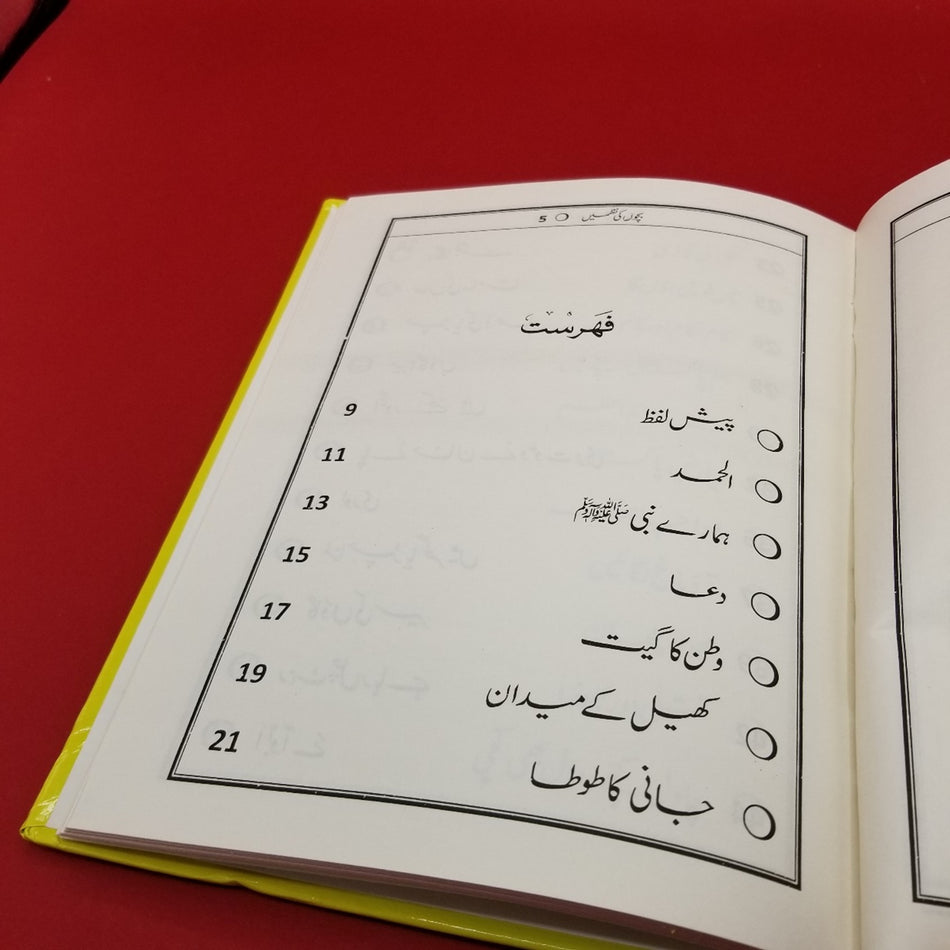 بچوں کی نظمیں 5
فہرست
پیش لفظ 9
الحمد 11
ہمارے نبی ﷺ 13
دعا 15
وطن کا گیت 17
کھیل کے میدان 19
جانی کا طوطا 21